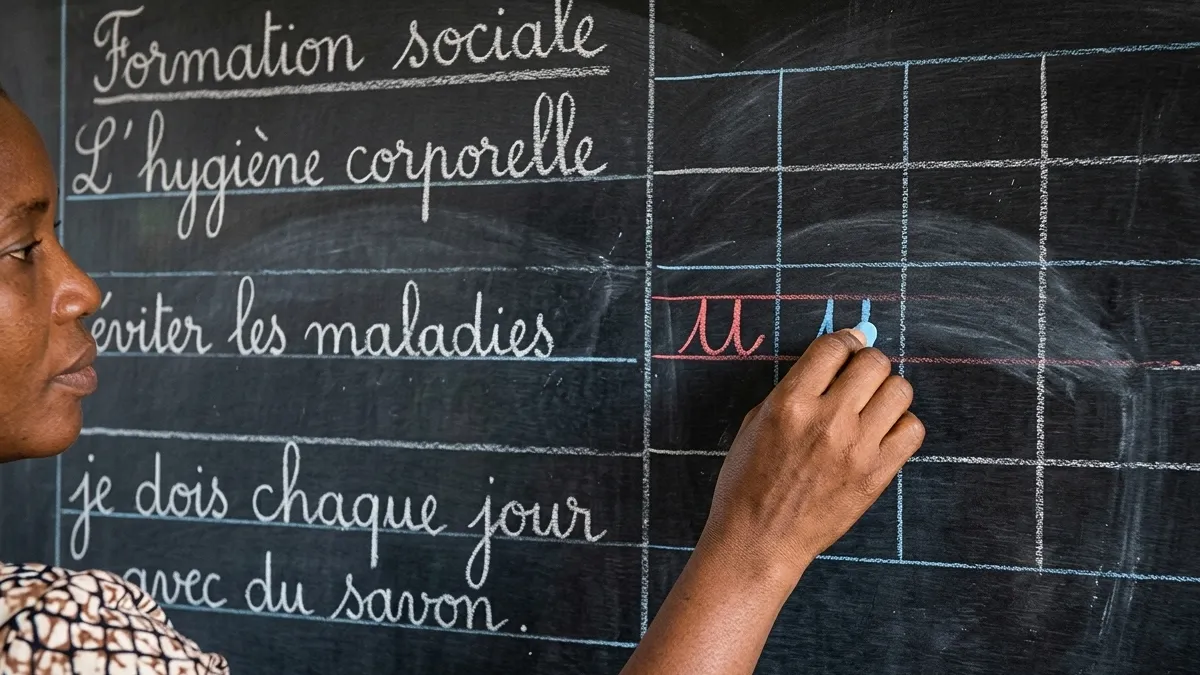 Formation sociale
L'hygiène corporelle
éviter les maladies
je dois chaque jour
avec du savon.
u u